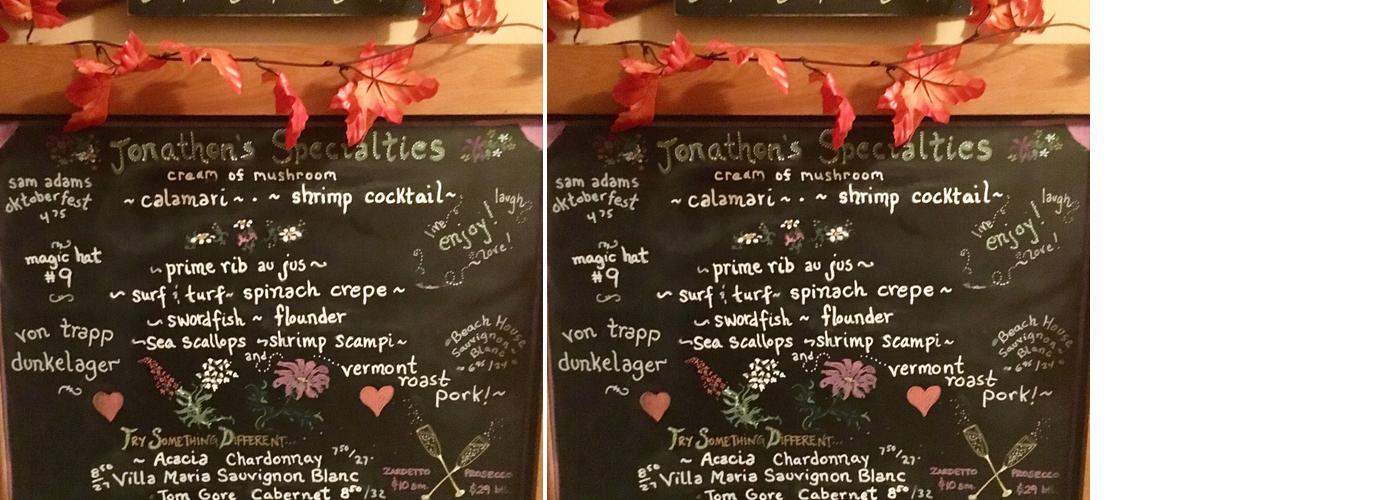 Jonathon's Specialties
cream of mushroom
~ calamari ~ · ~ shrimp cocktail ~
sam adams
oktoberfest
4 75
live laugh
enjoy!
love!
magic hat
#9
~ prime rib au jus ~
~ surf & turf ~ spinach crepe ~
~ swordfish ~ flounder
~ Sea Scallops ~ shrimp scampi ~
and
vermont
roast
pork! ~
von trapp
dunkelager
Beach House
Sauvignon
Blanc
Try Something Different...
~ Acacia Chardonnay 7 50/27.
8 50/27 Villa Maria Sauvignon Blanc
Tom Gore Cabernet 8 50/32
Zardetto
$10 sm.
Prosecco
$29
Jonathon's Specialties
cream of mushroom
~ calamari ~ · ~ shrimp cocktail ~
sam adams
oktoberfest
4 75
live laugh
enjoy!
love!
magic hat
#9
~ prime rib au jus ~
~ surf & turf ~ spinach crepe ~
~ swordfish ~ flounder
~ Sea Scallops ~ shrimp scampi ~
and
vermont
roast
pork! ~
von trapp
dunkelager
Beach House
Sauvignon
Blanc
Try Something Different...
~ Acacia Chardonnay 7 50/27.
8 50/27 Villa Maria Sauvignon Blanc
Tom Gore Cabernet 8 50/32
Zardetto
$10 sm.
Prosecco
$29